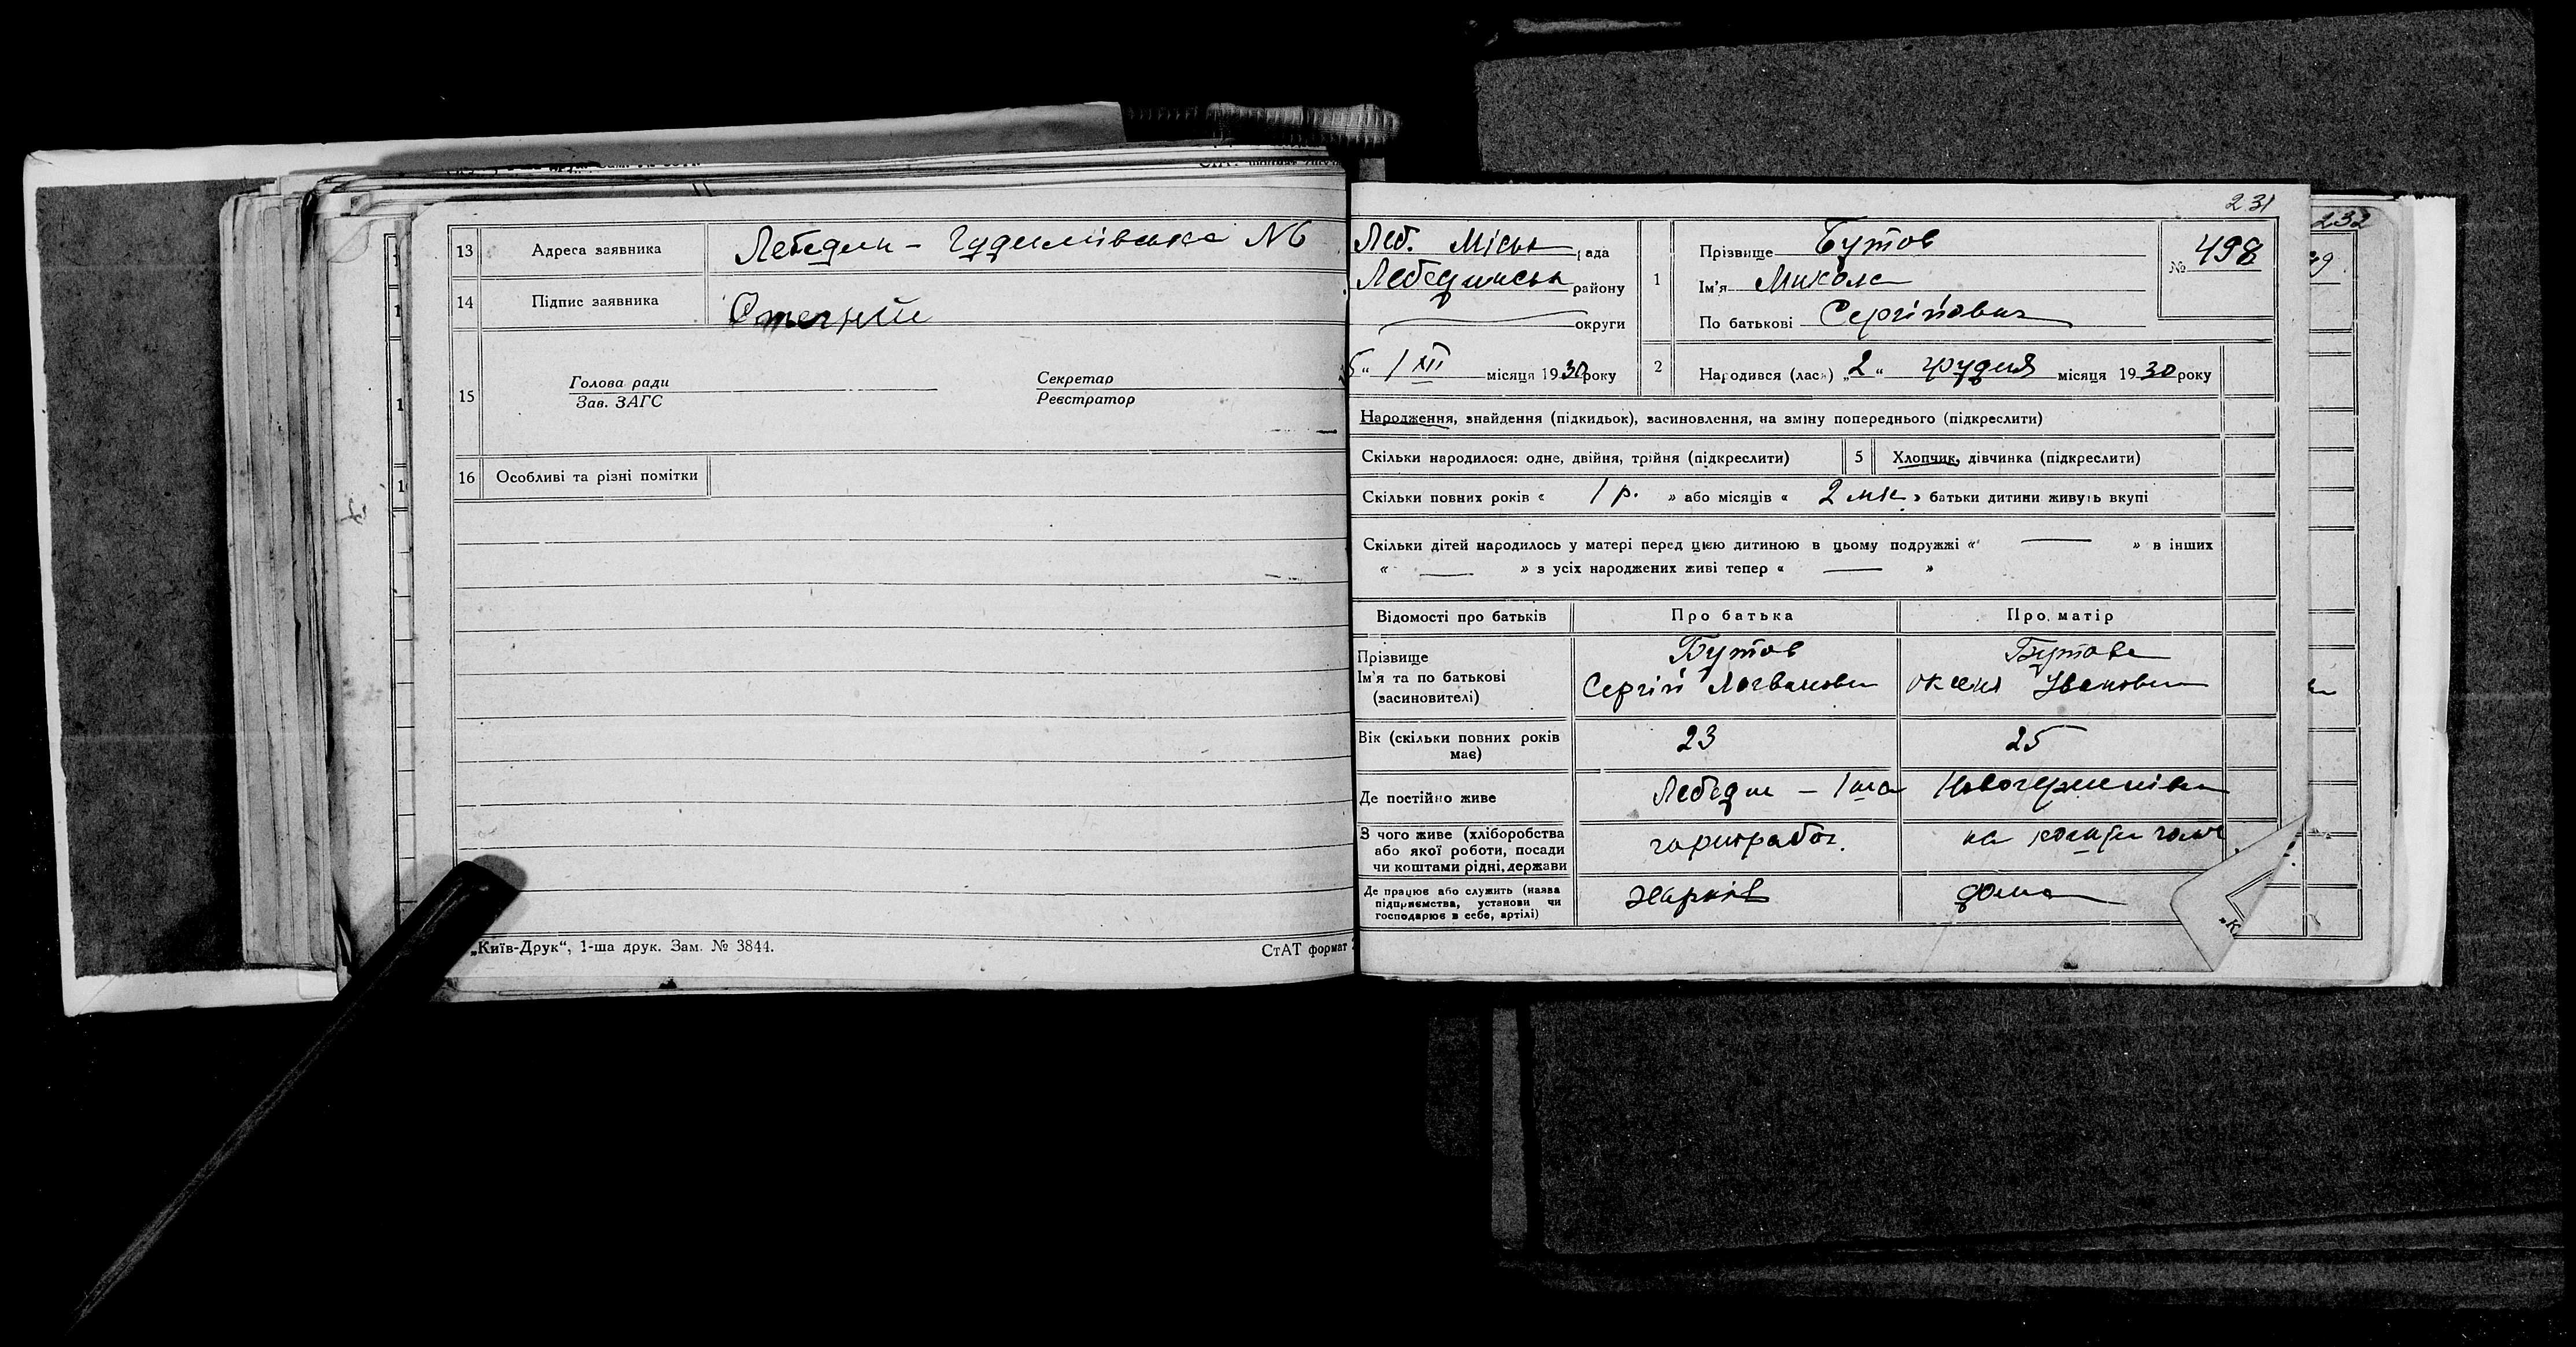 13 Адреса заявника Лебедин - Гудилівська N6
14 Підпис заявника
15 Голова ради Секретар
Зав. ЗАГС Реєстратор
16 Особливі та різні помітки
„Київ-Друк“, 1-ша друк. Зам. № 3844. СтАТ формат
231
232
Леб. Міськ рада
Лебединськ району
округи
1 XII місяця 1930 року
1 Прізвище Бутов
Ім'я Микола
По батькові Сергійович
№ 498
2 Народився (лась) „2“ грудня місяця 1930 року
Народження, знайдення (підкидьок), васиновлення, на зміну попереднього (підкреслити)
Скільки народилося: одне, двійня, трійня (підкреслити) 5 Хлопчик, дівчинка (підкреслити)
Скільки повних років « 1 р. » або місяців « 2 міс. » батьки дитини живуть вкупі
Скільки дітей народилось у матері перед цією дитиною в цьому подружжі « — » в інших
« — » з усіх народжених живі тепер « — »
Відомості про батьків Про батька Про матір
Прізвище Бутов Бутова
Ім'я та по батькові Сергій Логванович Оксена Івановна
(засиновителі)
Вік (скільки повних років 23 25
має)
Де постійно живе Лебедин - 1ша
З чого живе (хліборобства
або якої роботи, посади на кошти чолов
чи коштами рідні, держави
Де працює або служить (назва Харків дома
підприємства, установи чи
господарює в себе, артілі)